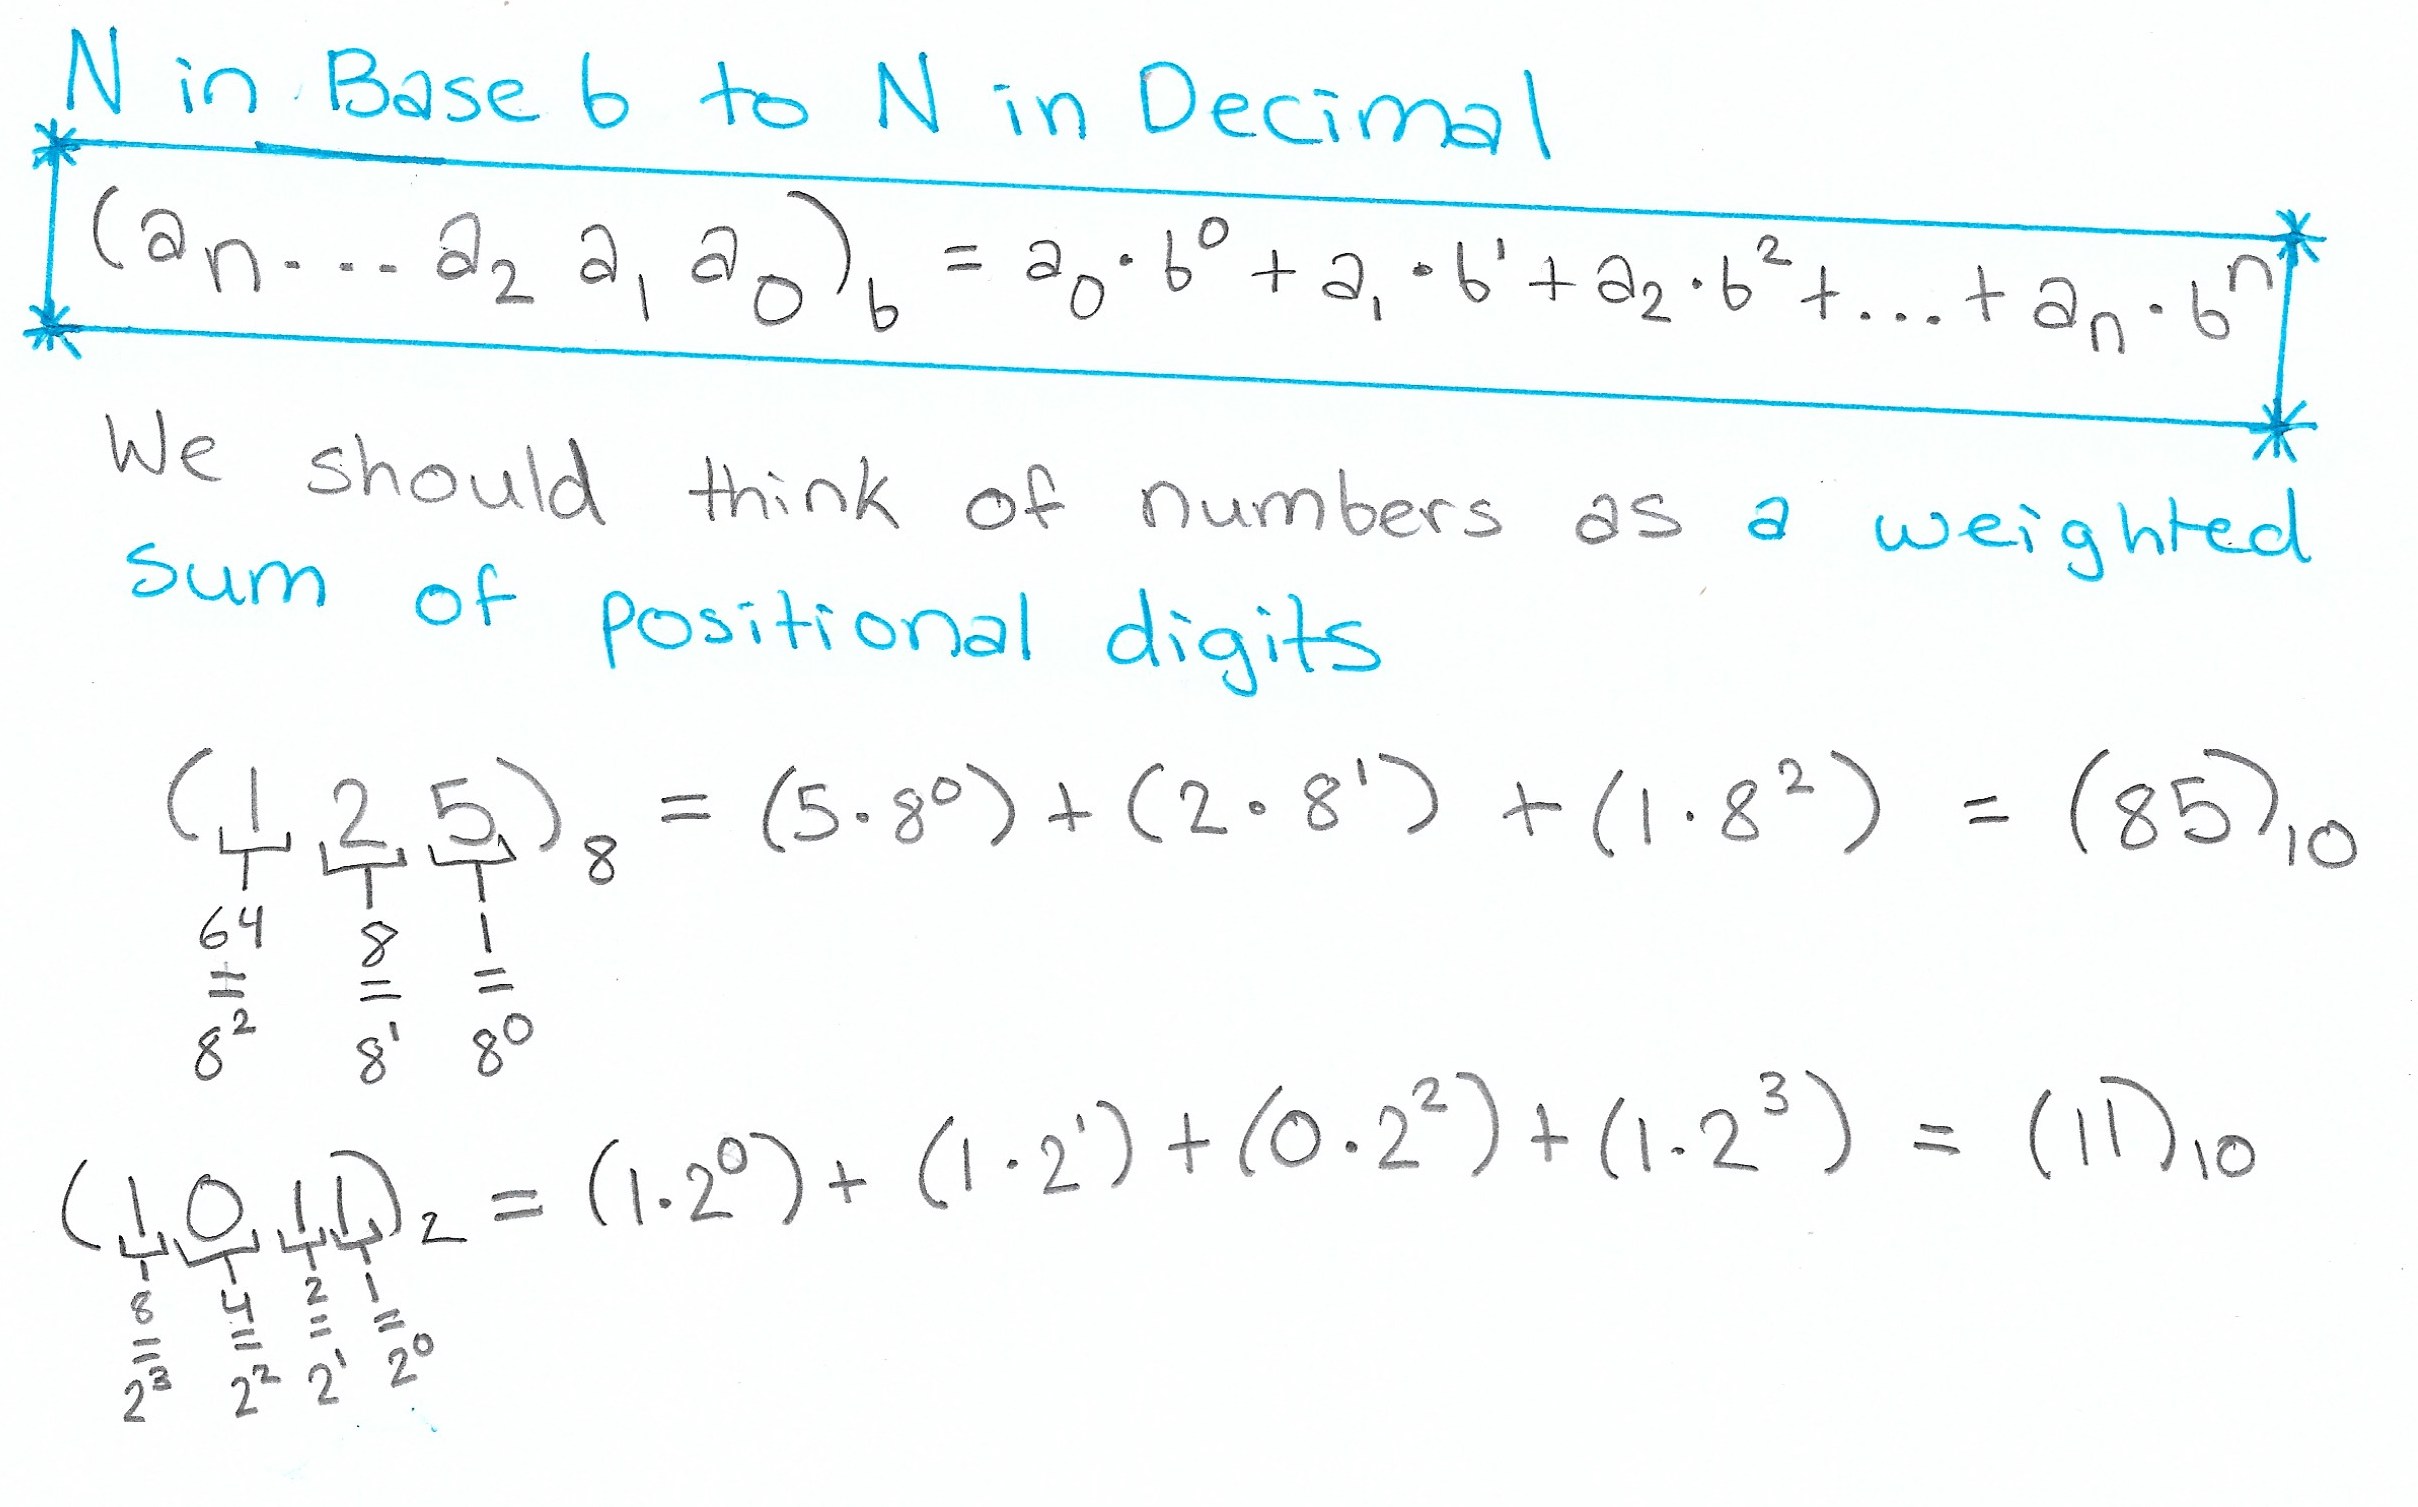 N in Base b to N in Decimal
(aₙ.... a₂ a₁ a₀)_b = a₀·b⁰ + a₁·b¹ + a₂·b² + ... + aₙ·bⁿ
We should think of numbers as a weighted
sum of positional digits
(1 2 5)₈ = (5·8⁰) + (2·8¹) + (1·8²) = (85)₁₀
64 8 1
= = =
8² 8¹ 8⁰
(1011)₂ = (1·2⁰) + (1·2¹) + (0·2²) + (1·2³) = (11)₁₀
8 4 2 1
= = = =
2³ 2² 2¹ 2⁰